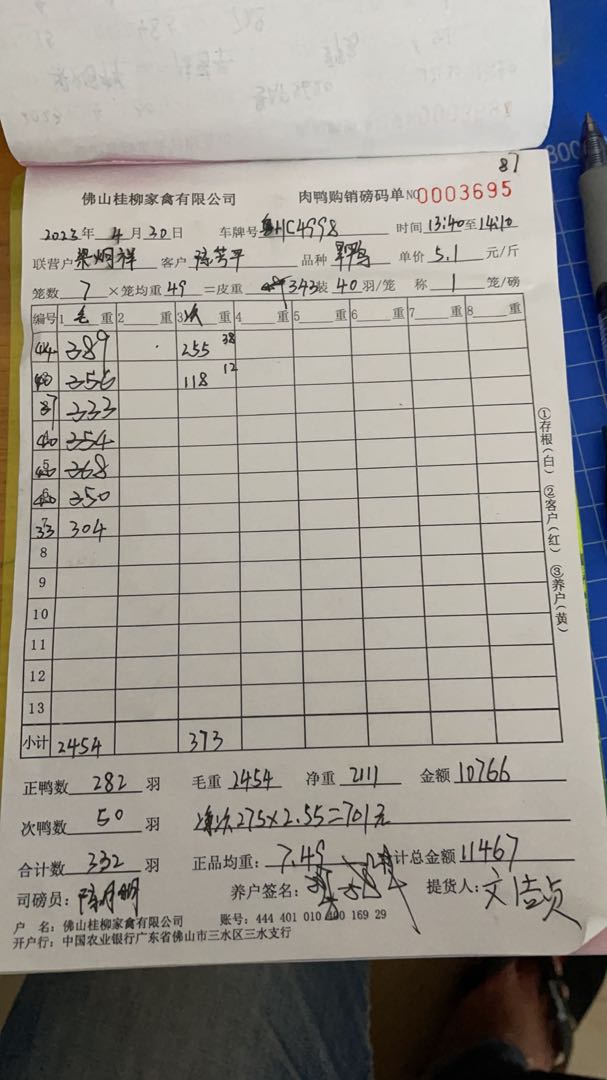 87
佛山桂柳家禽有限公司 肉鸭购销磅码单 NO 0003695
2023年 4月 30日 车牌号 粤HC4998 时间 13:40 至 14:10
联营户 梁炳祥 客户 品种 单价 5.1 元/斤
笼数 7 ×笼均重 49 =皮重 343 装 40 羽/笼 称 1 笼/磅
编号 1 毛 重 2 重 3 次 重 4 重 5 重 6 重 7 重 8 重
44 389 255 38
356 118 12
37 333
40 354
368
350
33 304
8
9
10
11
12
13
小计 2454 373
①存根(白) ②客户(红) ③养户(黄)
正鸭数 282 羽 毛重 2454 净重 2111 金额 10766
次鸭数 50 羽 净次275×2.55=701元
合计数 332 羽 正品均重: 7.49 合计总金额 11467
司磅员: 养户签名: 提货人:
户 名: 佛山桂柳家禽有限公司 账号: 444 401 010 400 169 29
开户行: 中国农业银行广东省佛山市三水区三水支行